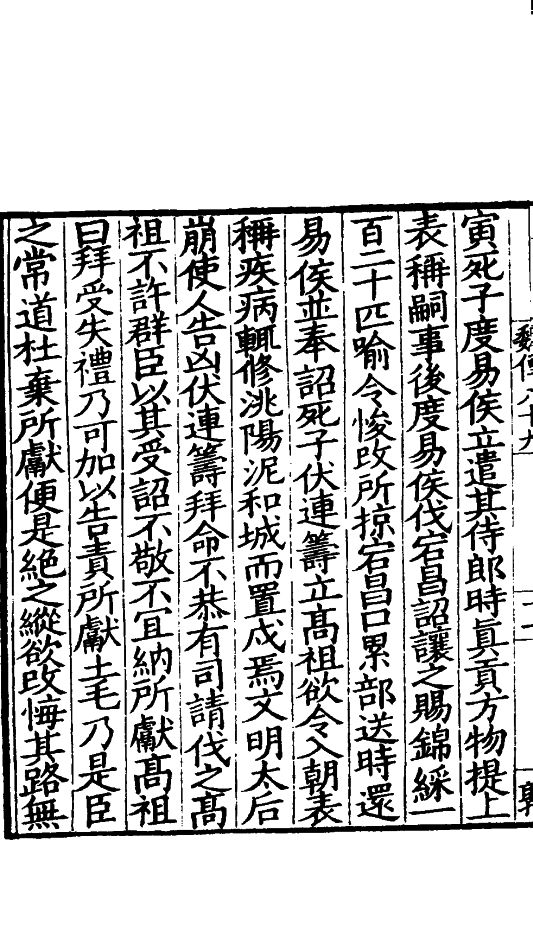 魏傳八十九
二二
寅死子度易侯立遣其侍郎時眞貢方物提上
表稱嗣事後度易侯伐宕昌詔讓之賜錦綵一
百二十匹喻令悛改所掠宕昌口累部送時還
易侯並奉詔死子伏連籌立高祖欲令入朝表
稱疾病輒修洮陽泥和城而置戍焉文明太后
崩使人告凶伏連籌拜命不恭有司請伐之高
祖不許群臣以其受詔不敬不宜納所獻高祖
曰拜受失禮乃可加以告責所獻土毛乃是臣
之常道杜棄所獻便是絕之縱欲改悔其路無